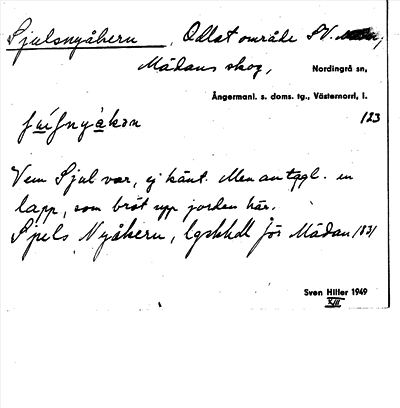 Sjulsnyåkern, Odlat område SV.
Mädans skog, Nordingrå sn,
Ångermanl. s. doms. tg., Västernorrl. l.
123
Vem Sjul var, ej känt. Men antagl. en
lapp, som bröt upp jorden här.
Spels Nyåkern, lgskkdl för Mädan 1831
Sven Hiller 1949
XIII